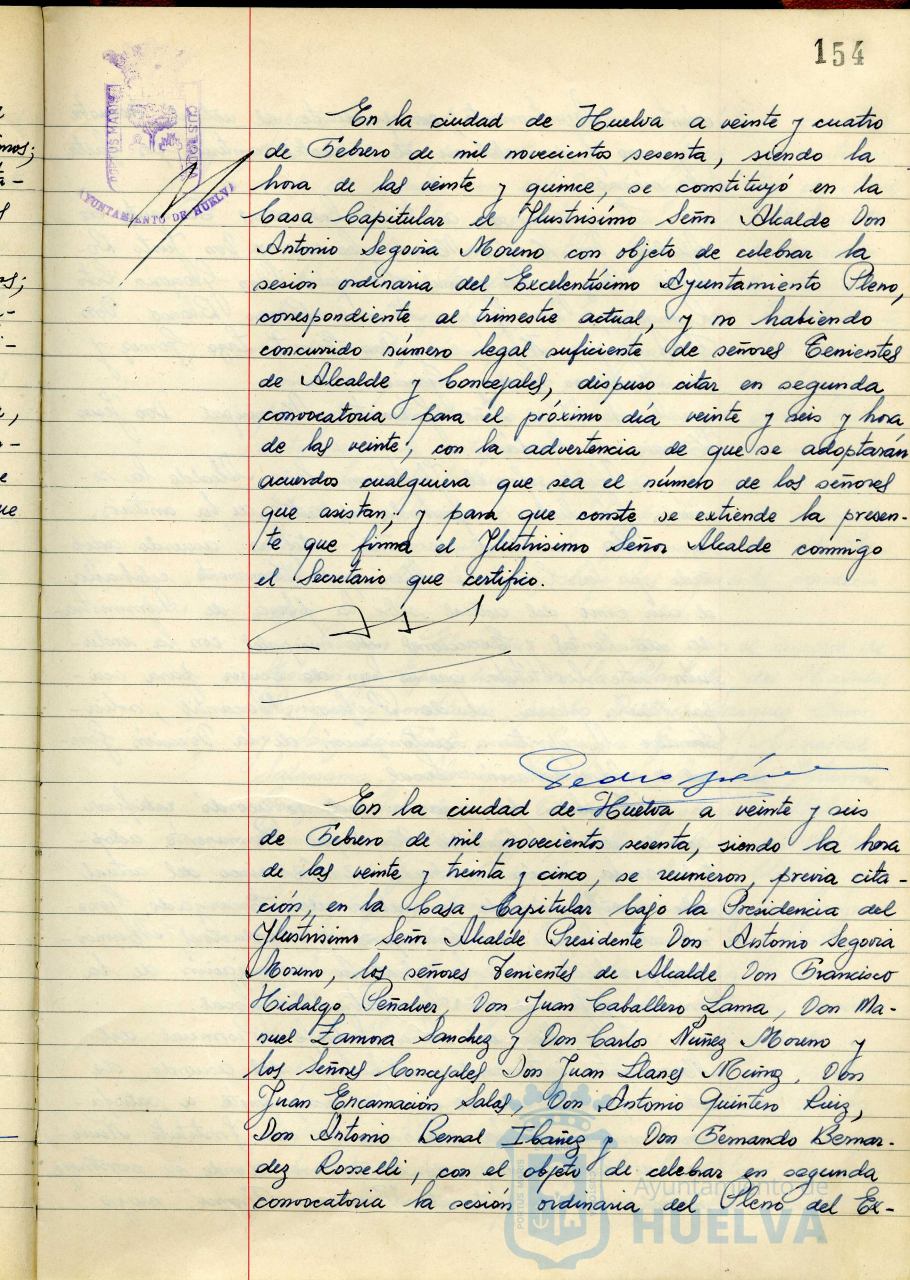 154
En la ciudad de Huelva a veinte y cuatro
de Febrero de mil novecientos sesenta, siendo la
hora de las veinte y quince, se constituyó en la
Casa Capitular el Ilustrisimo Señor Alcalde Don
Antonio Segovia Moreno con objeto de celebrar la
sesión ordinaria del Excelentísimo Ayuntamiento Pleno,
correspondiente al trimestre actual, y no habiendo
concurrido número legal suficiente de señores Tenientes
de Alcalde y Concejales, dispuso citar en segunda
convocatoria para el próximo día veinte y seis y hora
de las veinte, con la advertencia de que se adoptarán
acuerdos cualquiera que sea el número de los señores
que asistan; y para que conste se extiende la presen-
te que firma el Ilustrisimo Señor Alcalde conmigo
el Secretario que certifico.
Pedro
En la ciudad de Huelva a veinte y seis
de Febrero de mil novecientos sesenta, siendo la hora
de las veinte y treinta y cinco, se reunieron, previa cita-
ción, en la Casa Capitular bajo la Presidencia del
Ilustrisimo Señor Alcalde Presidente Don Antonio Segovia
Moreno, los señores Tenientes de Alcalde Don Francisco
Hidalgo Peñalver, Don Juan Caballero Lama, Don Ma-
nuel Zamora Sanchez y Don Carlos Núñez Moreno y
los Señores Concejales Don Juan Llanes Muñoz, Don
Juan Encarnación Salas, Don Antonio Quintero Ruiz,
Don Antonio Bernal Ibañez y Don Fernando Bermar-
dez Rosselli, con el objeto de celebrar en segunda
convocatoria la sesión ordinaria del Pleno del Ex-
PORTUS MARIS
CUSTODIA
AYUNTAMIENTO DE HUELVA
Ayuntamiento de
HUELVA